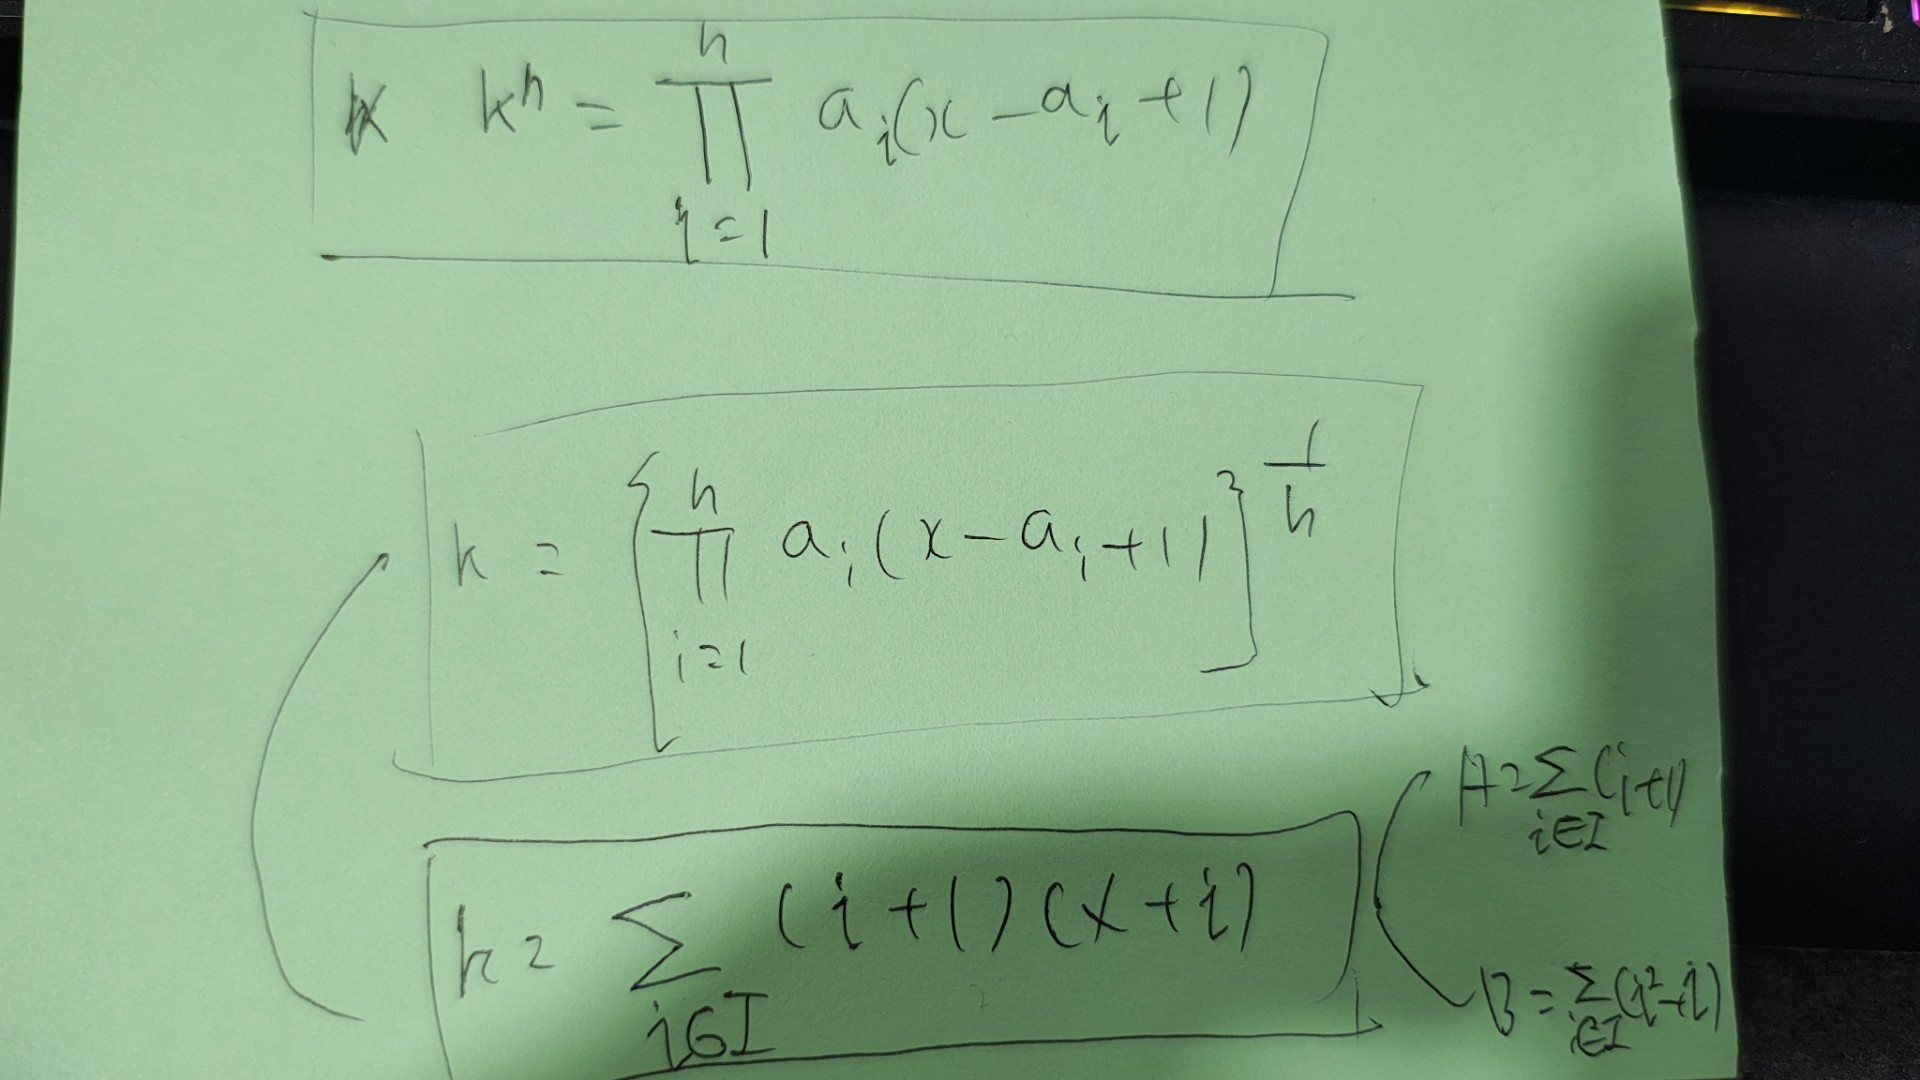 k kⁿ = ∏_{i=1}^{n} a_i(x - a_i + 1)
k = [∏_{i=1}^{n} a_i(x - a_i + 1)]^{1/n}
A = ∑_{i∈I} (i+1)
k = ∑_{i∈I} (i+1)(x+i)
B = ∑_{i∈I} (i²+i)